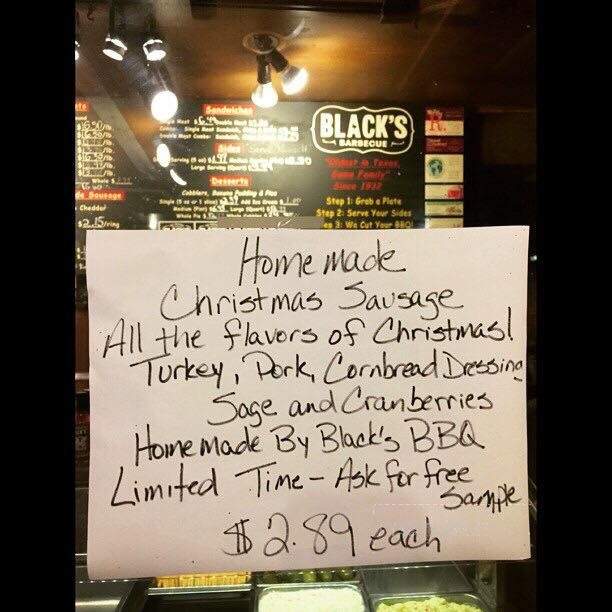 Sandwiches
BLACK'S
BARBECUE
"Oldest in Texas
Same Family"
Since 1932
Step 1: Grab a Plate
Step 2: Serve Your Sides
We Cut Your BBQ
Sides
Desserts
Cobblers, Banana Pudding & Pies
Sausage
Cheddar
$2.15/ring
Home made
Christmas Sausage
All the flavors of Christmas!
Turkey, Pork, Cornbread Dressing
Sage and Cranberries
Home made By Black's BBQ
Limited Time - Ask for free
Sample
$2.89 each